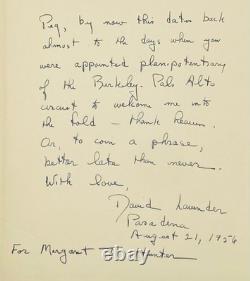 Peg, by now this dates back
almost to the days when you
were appointed plenipotentiary
of the Berkeley-Palo Alto
circuit to welcome me into
the fold — thank heaven.
Or, to coin a phrase,
better late than never.
With love,
David Lavender
Pasadena
August 21, 1956
For Margaret